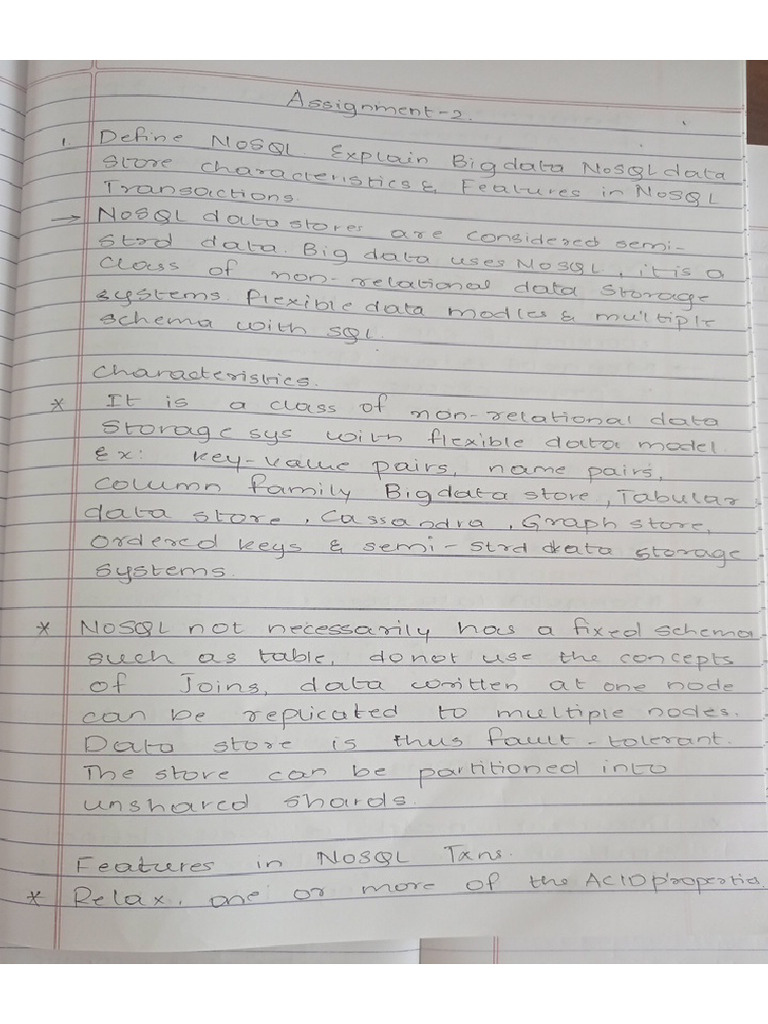 Assignment-2.
1. Define NoSQL. Explain Bigdata NoSQL data
Store characteristics & Features in NoSQL
Transactions.
→ NoSQL data stores are considered semi-
Strd data. Big data uses NoSQL, it is a
class of non-relational data storage
systems flexible data modles & multiple
schema with SQL.
Characteristics.
* It is a class of non-relational data
Storage sys with flexible data model
Ex: key-value pairs, name pairs,
column family Bigdata store, Tabular
data store, Cassandra, Graph store,
ordered keys & semi-strd data storage
systems.
* NoSQL not necessarily has a fixed schema
such as table, donot use the concepts
of Joins, data written at one node
can be replicated to multiple nodes.
Data store is thus fault-tolerant.
The store can be partitioned into
unshared shards.
Features in NoSQL Txns.
* Relax, one or more of the ACID propertie